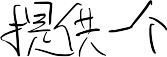 提供一个